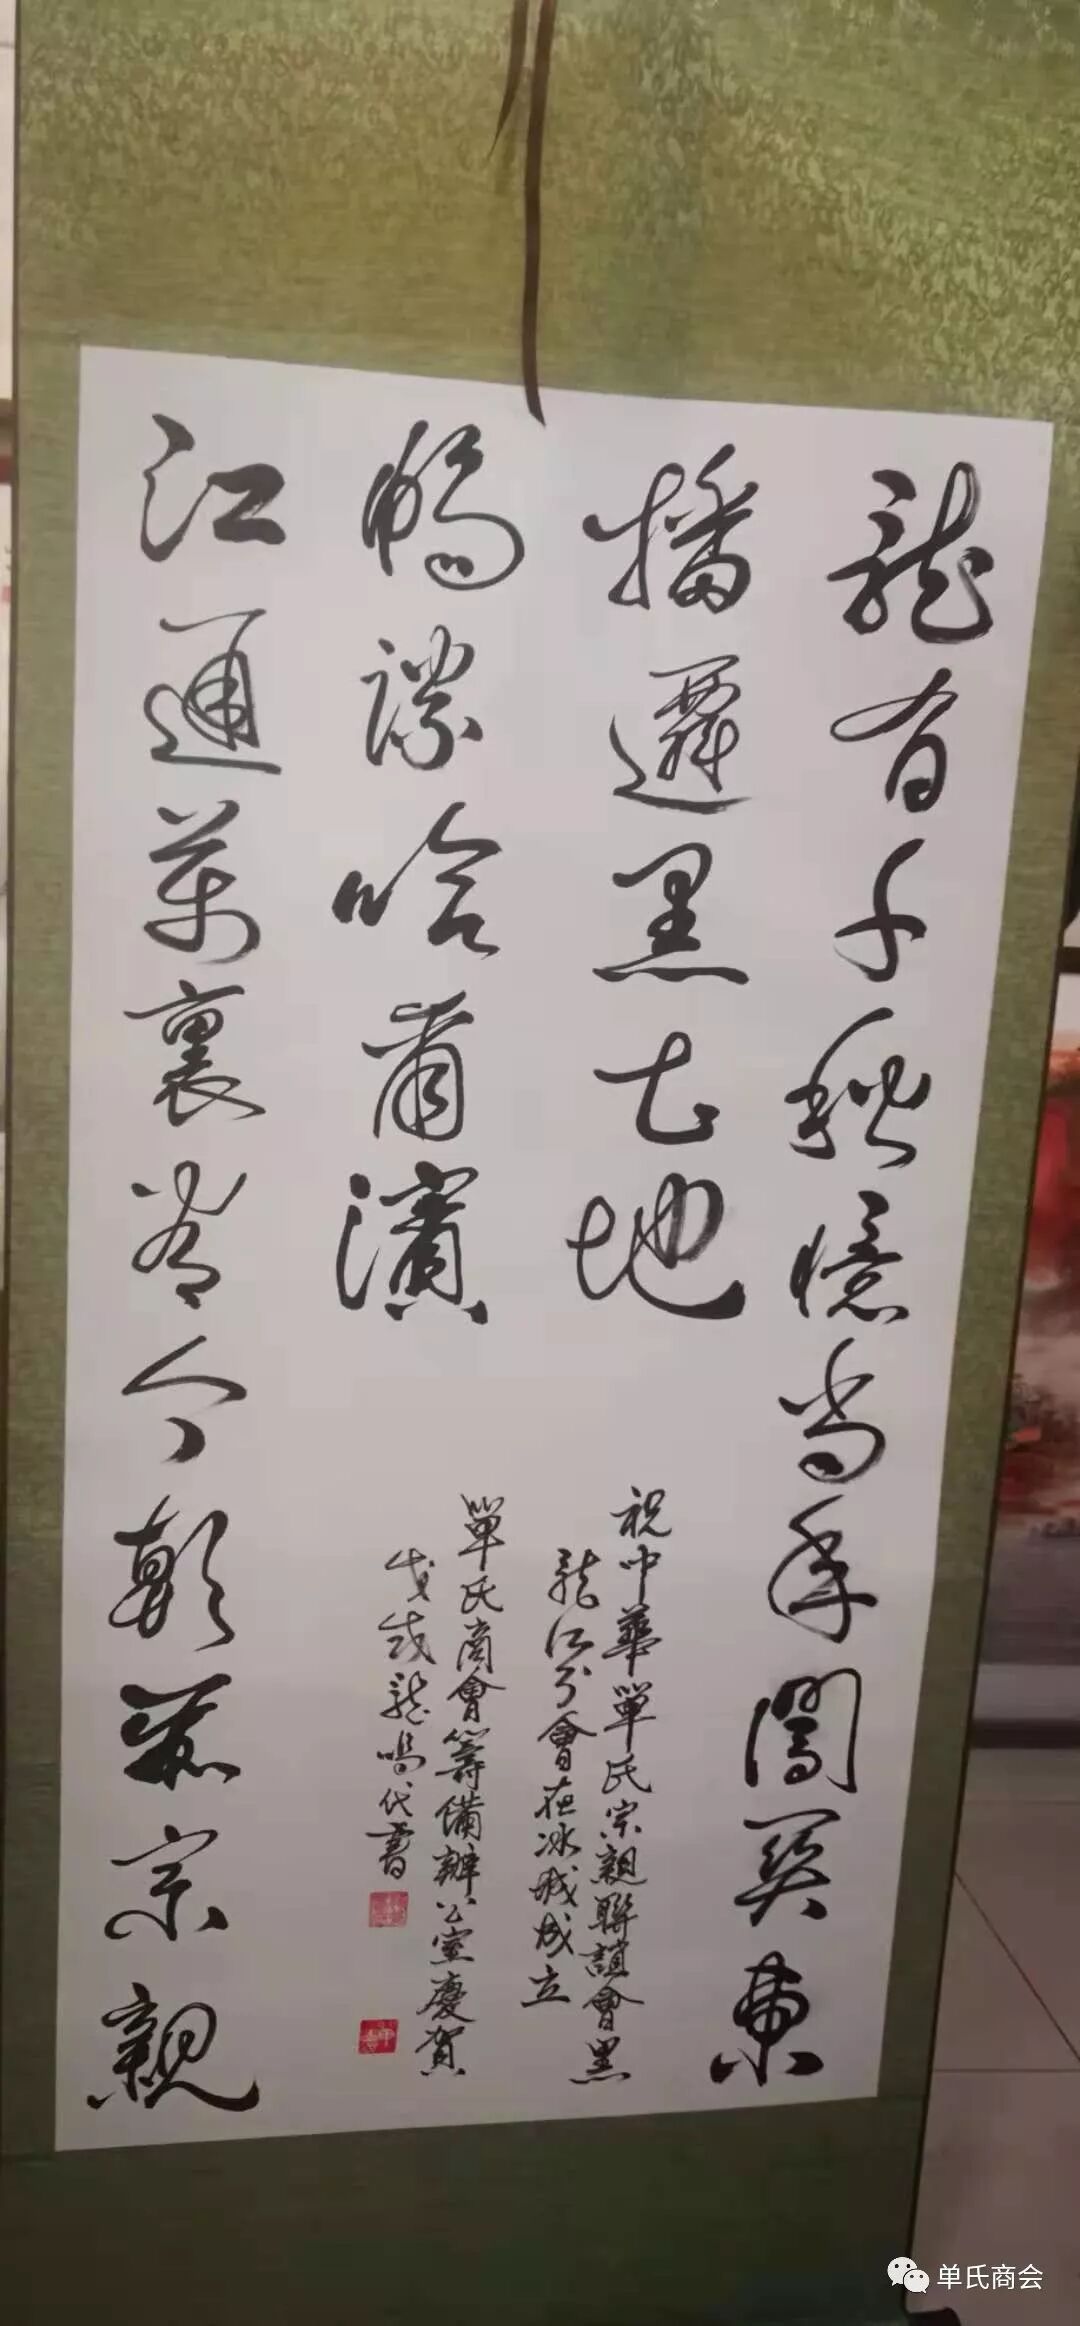 龍有千秋憶當年闖關東
播遷黑土地
江通萬裏看今朝聚宗親
暢談哈爾濱
祝中華單氏宗親聯誼會黑
龍江分會在冰城成立
單氏商會籌備辦公室慶賀
戊戌龍鳴代書
单氏商会